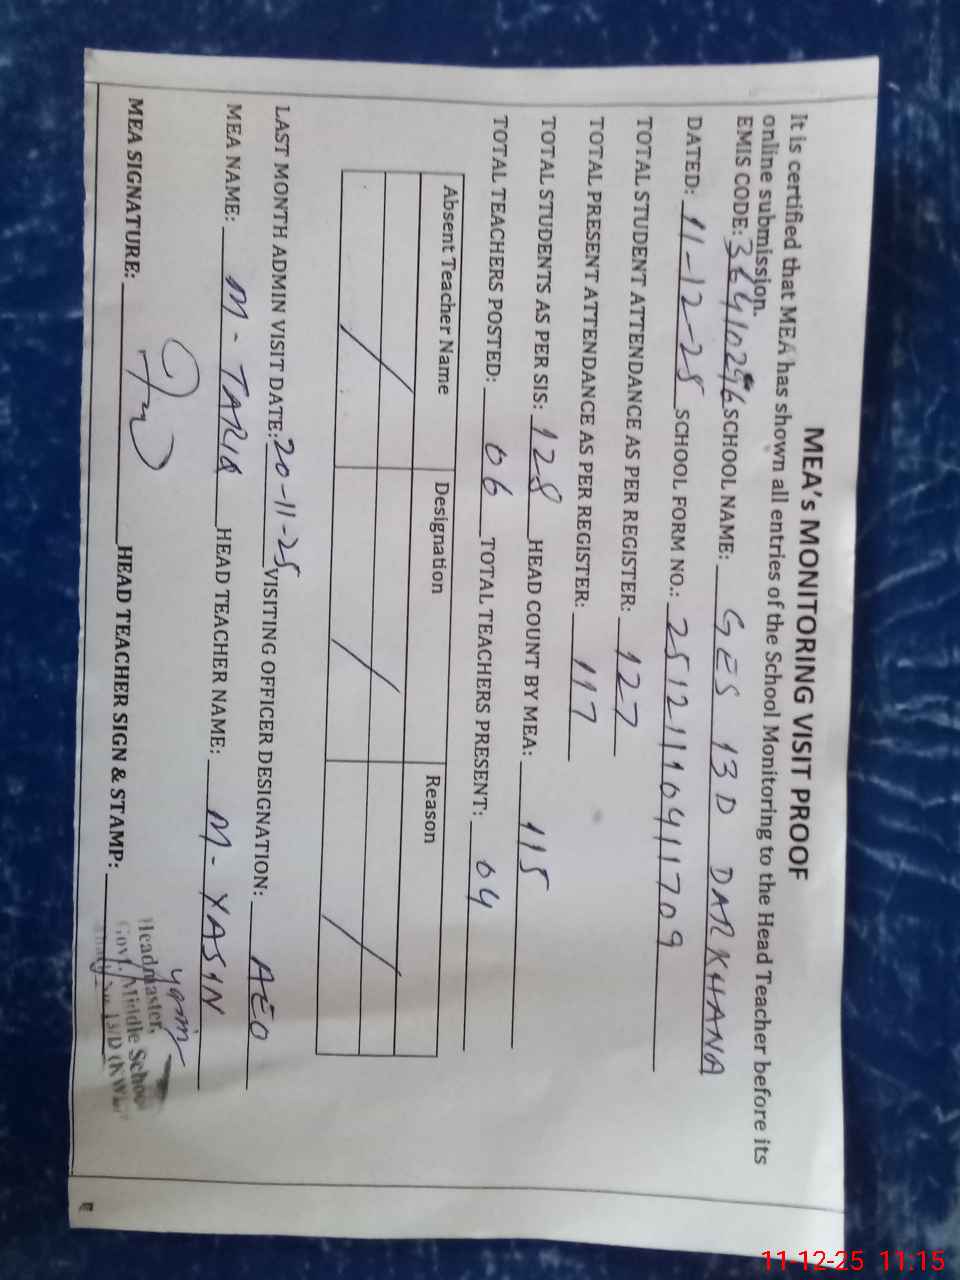 MEA's MONITORING VISIT PROOF
It is certified that MEA has shown all entries of the School Monitoring to the Head Teacher before its
online submission.
EMIS CODE: SCHOOL NAME: GES 13D DARKHANA
DATED: 11-12-25 SCHOOL FORM NO.: 25121110411709
TOTAL STUDENT ATTENDANCE AS PER REGISTER: 127
TOTAL PRESENT ATTENDANCE AS PER REGISTER: 117
TOTAL STUDENTS AS PER SIS: 128 HEAD COUNT BY MEA: 115
TOTAL TEACHERS POSTED: 06 TOTAL TEACHERS PRESENT: 04
Absent Teacher Name Designation Reason
LAST MONTH ADMIN VISIT DATE: 20-11-25 VISITING OFFICER DESIGNATION: AEO
MEA NAME: M-TARIQ HEAD TEACHER NAME: M-YASIN
MEA SIGNATURE: HEAD TEACHER SIGN & STAMP:
Yasin
Headmaster,
Govt. Middle School
13/D
11-12-25 11:15